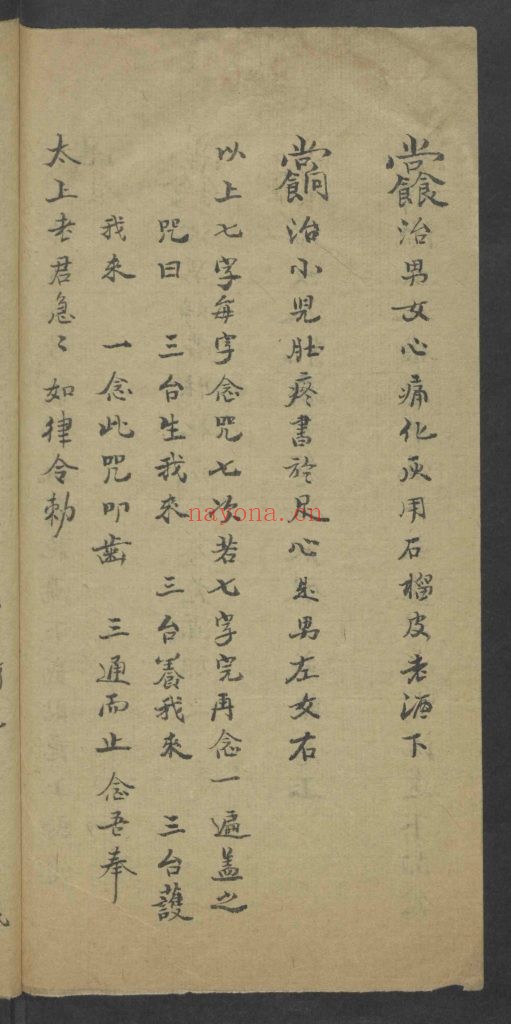 治男女心痛化灰用石榴皮老酒下
治小児肚疼書於足心是男左女右
以上七字每字念咒七次若七字完再念一遍盖之
咒曰 三台生我來 三台養我來 三台護
我來 一念此咒叩齒 三通而止念吾奉
太上老君急〻如律令勅
nayona.cn